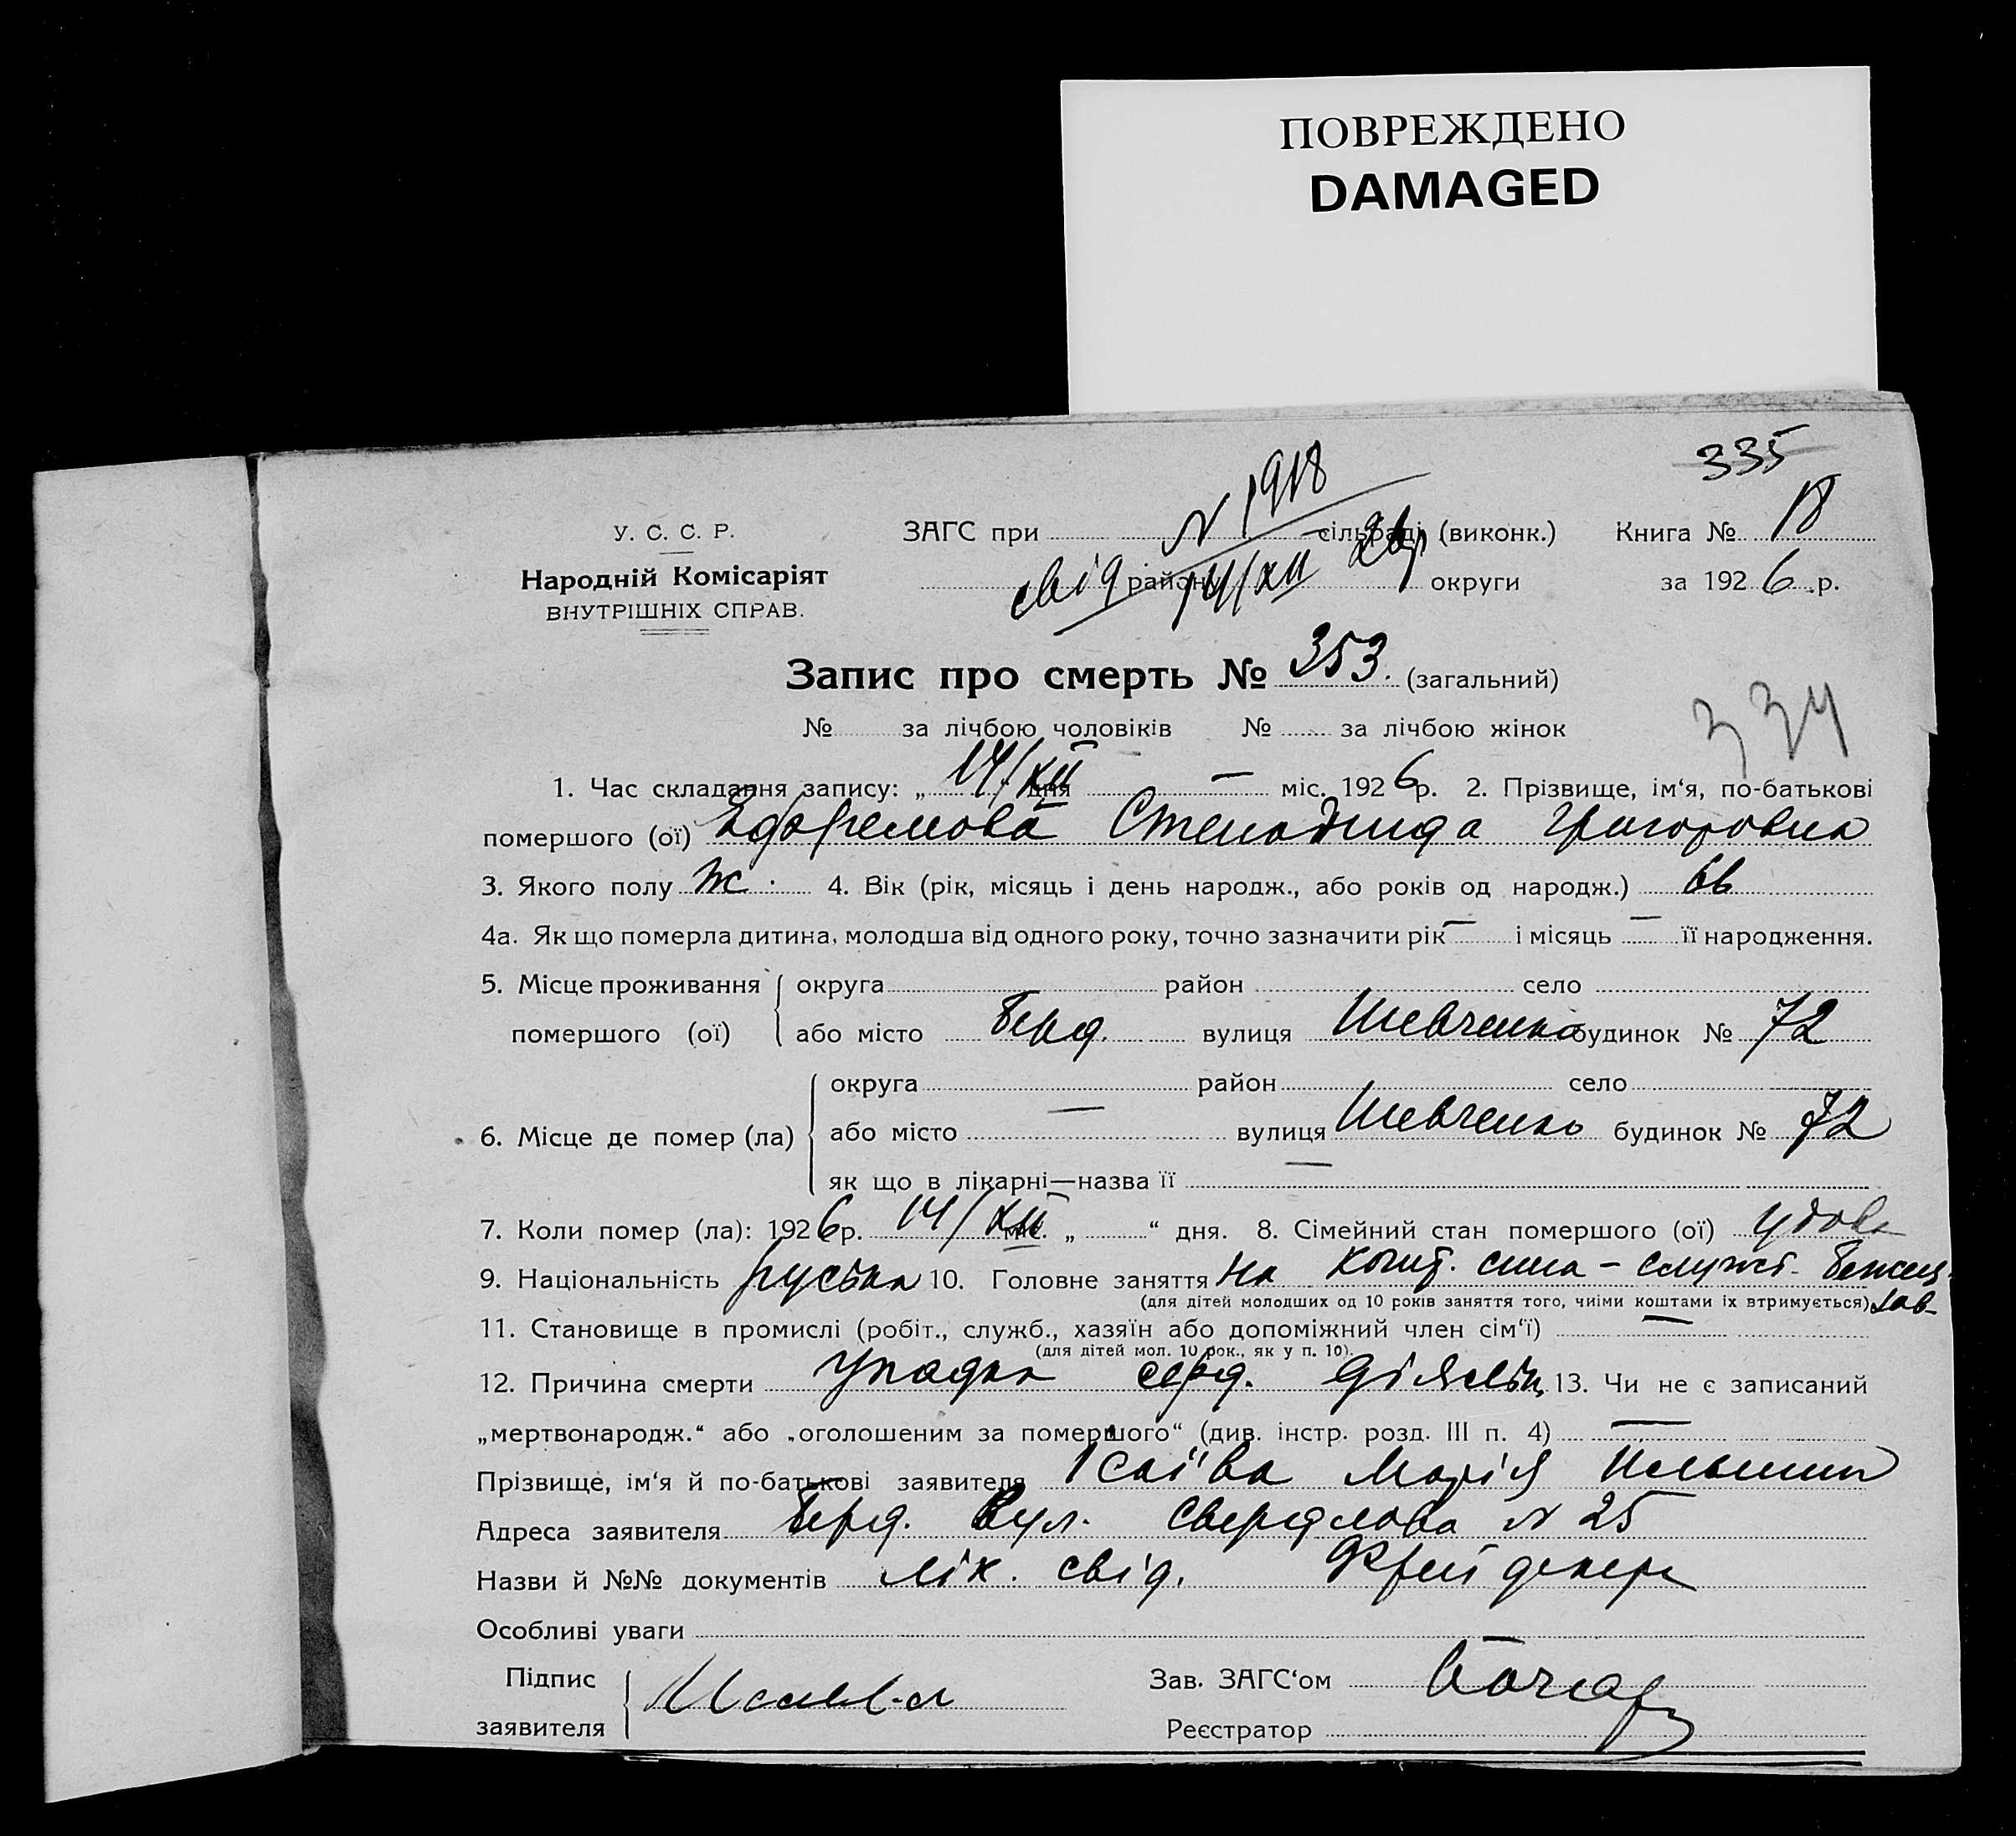 ПОВРЕЖДЕНО
DAMAGED
335
У. С. С. Р.
Народній Комісаріят
ВНУТРІШНІХ СПРАВ.
ЗАГС при сільраді (виконк.) Книга № 18
район округи за 1926 р.
N 1918
свід 14/XII
Запис про смерть № 353. (загальний)
№ за лічбою чоловіків № за лічбою жінок
334
1. Час складання запису: „ 14/XII дня — міс. 1926 р. 2. Прізвище, ім‘я, по-батькові
помершого (ої) Ефремова Степанида Григоровна
3. Якого полу ж. 4. Вік (рік, місяць і день народж., або років од народж.) 66
4а. Як що померла дитина, молодша від одного року, точно зазначити рік — і місяць — її народження.
5. Місце проживання округа район село
помершого (ої) або місто Берд. вулиця Шевченко будинок № 72
округа район село
6. Місце де помер (ла) або місто — вулиця Шевченко будинок № 72
як що в лікарні—назва її —
7. Коли помер (ла): 1926 р. 14/XII міс. „ “ дня. 8. Сімейний стан помершого (ої) удова
9. Національність руська 10. Головне заняття на кошт. сина – служб.
(для дітей молодших од 10 років заняття того, чиїми коштами їх втримується)
11. Становище в промислі (робіт., служб., хазяїн або допоміжний член сім‘ї) —
(для дітей мол. 10 рок., як у п. 10).
12. Причина смерти Упадок серд. діяльн. 13. Чи не є записаний
„мертвонародж.“ або „оголошеним за помершого“ (див. інстр. розд. III п. 4) —
Прізвище, ім‘я й по-батькові заявителя Ісаїва Марія
Адреса заявителя Берд. Вул. Свердлова N 25
Назви й №№ документів лік. свід.
Особливі уваги
Підпис
заявителя
Зав. ЗАГС‘ом
Реєстратор